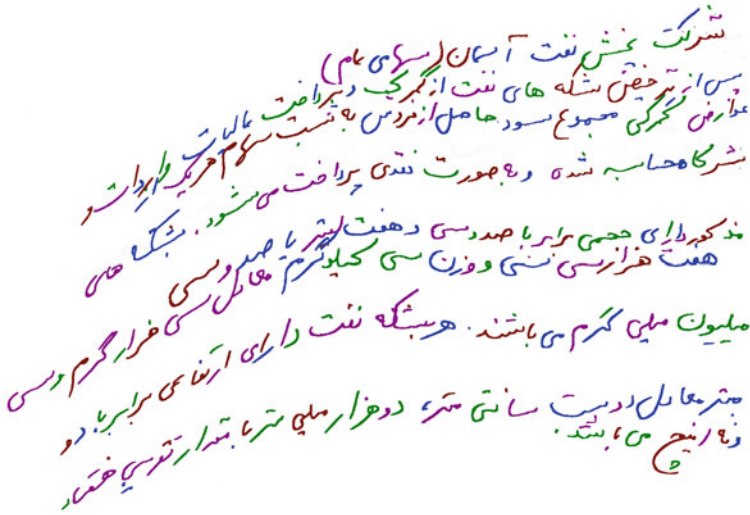 شرکت پخش نفت آسمان (سهامی عام)
پس از ترخیص بشکه های نفت از گمرک و پرداخت مالیات واردات و
عوارض گمرکی مجموع سود حاصل از فروش به نسبت سهام هریک از
شرکا محاسبه شده و به صورت نقدی پرداخت می شود. بشکه های
مذکور دارای حجمی برابر با صد و سی و هفت لیتر یا صد و سی
هفت هزار سی سی و وزن سی کیلوگرم معادل سی هزار گرم و سی
میلیون میلی گرم می باشند. هر بشکه نفت دارای ارتفاعی برابر با دو
متر معادل دویست سانتی متر، دو هزار میلی متر با مقدار تقریبی هفتاد
و نه اینچ می باشد.